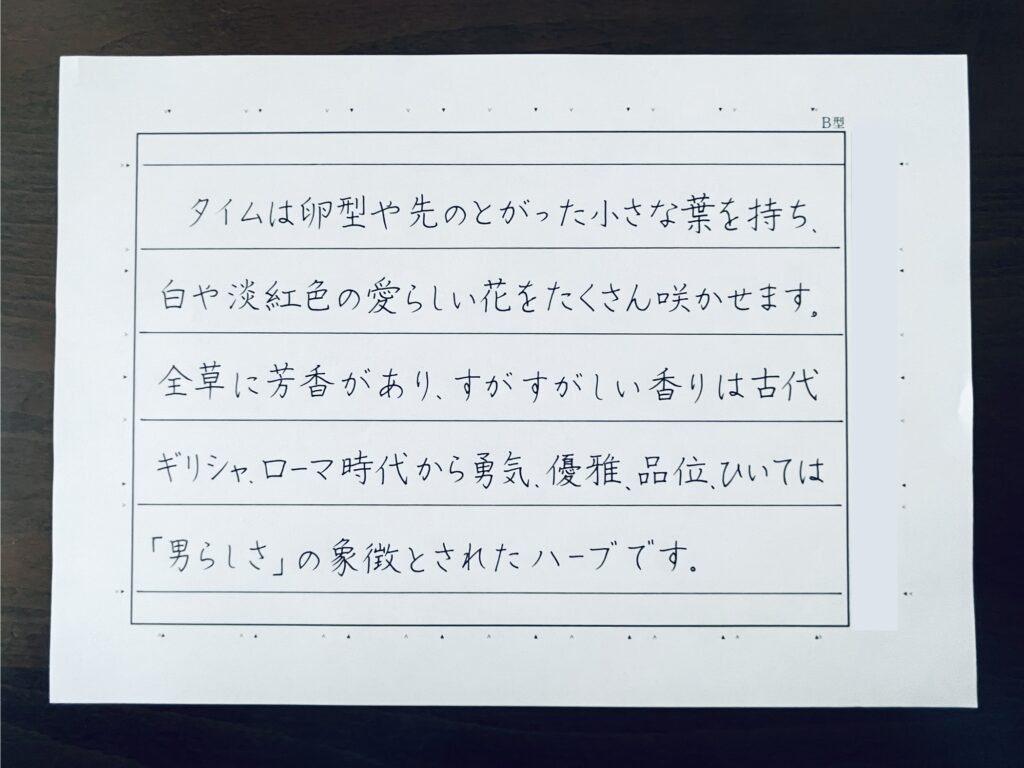 B型
タイムは卵型や先のとがった小さな葉を持ち、
白や淡紅色の愛らしい花をたくさん咲かせます。
全草に芳香があり、すがすがしい香りは古代
ギリシャ、ローマ時代から勇気、優雅、品位、ひいては
「男らしさ」の象徴とされたハーブです。